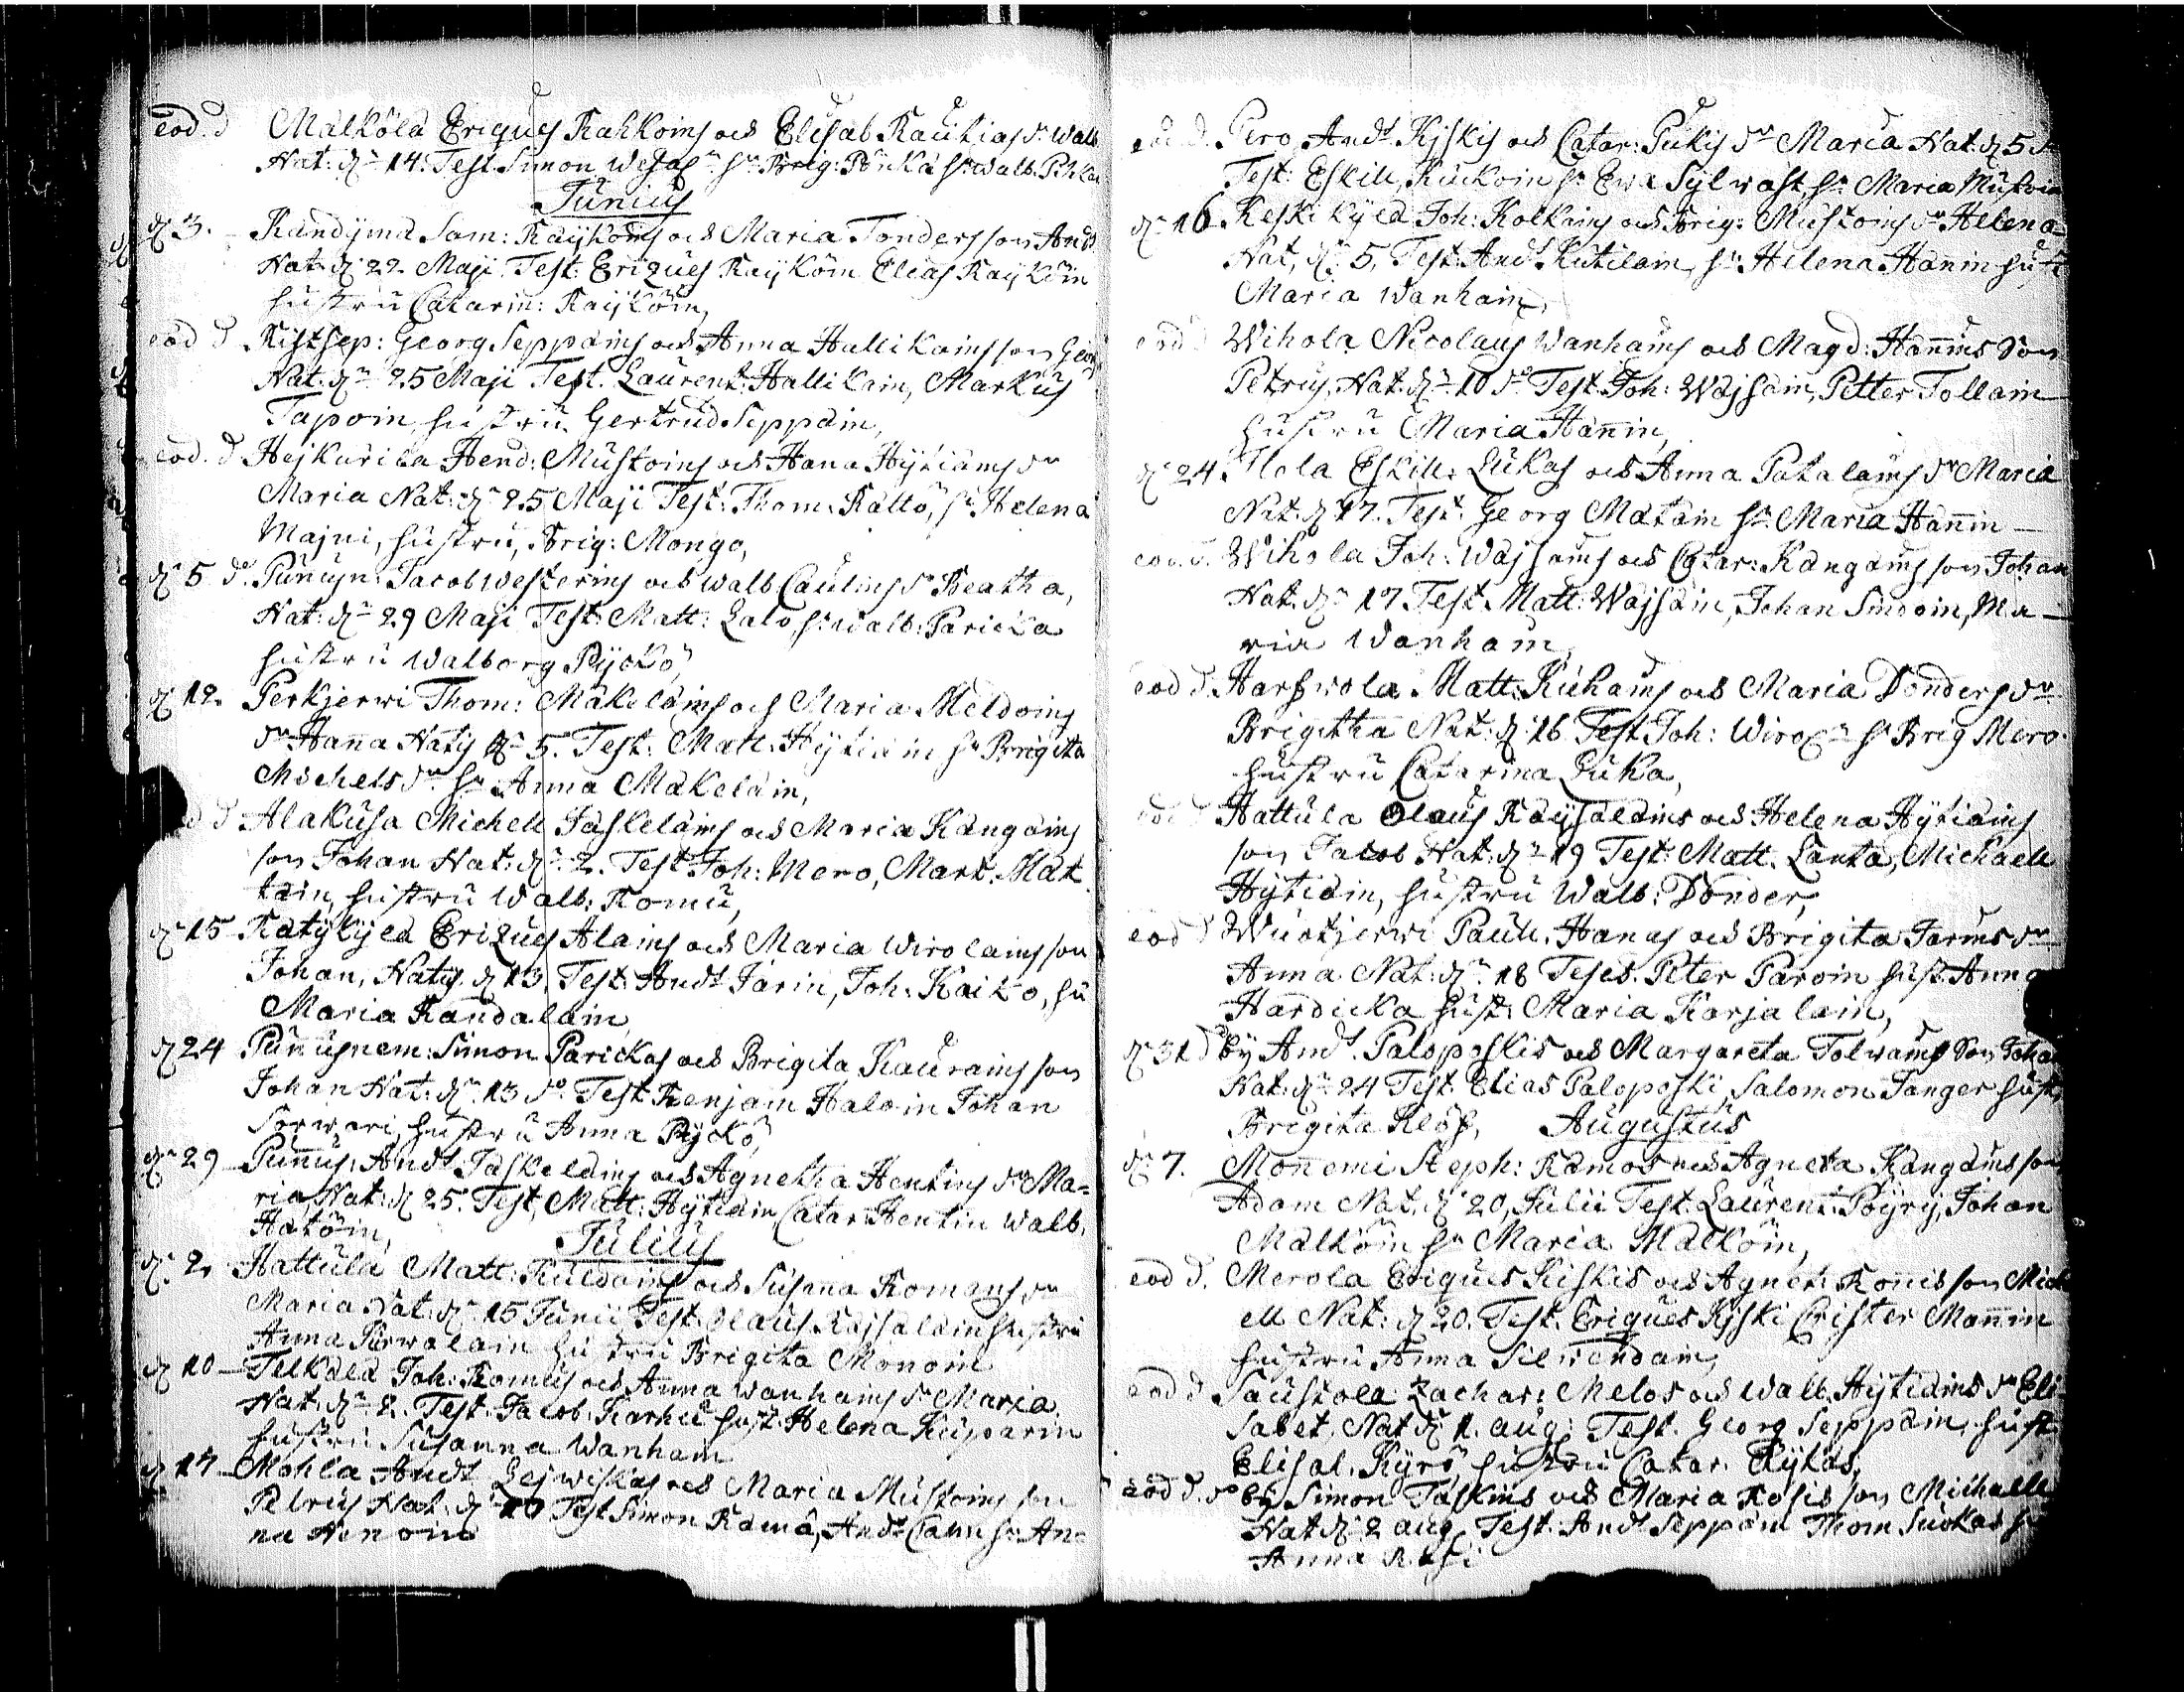 eod. d Mälkölä Ericus Kahkoins och Elisab Rautias dr. Walb
Nat: dn 14. Test. Simon hu Brig: hu Walb. Pihka
Junius
dn 3. Kandyma Sam: Raÿköins och Maria Tonders son And
Nat: dn 22. Maji. Test: Ericues Raÿköin Elias Raÿköin
hustru Catarin: Raÿköin,
eod d Kistsep: Georg Seppäins och Anna Hallikains son Georg
Nat: dn 25 Maji Test. Laurent: Hallikain, Markus
Tapoin, hustru Gertrud Seppäin,
eod. d Hejkurila Hend: Mustoins och Hana Hÿtiäins dr
Maria Nat: dn 25 Maji Test: Thom: Kälto, hu Helena
Majui, hustru, Brig: Mongo,
dn 5 do. Punuyn: Jacob Westerins och Walb Caulins dr Beatha,
Nat: dn 29 Maji Test: Matt: Lalo hu Walb: Paricka
hustru Walborg Pÿckö,
dn 12. Perkjerwi Thom: Mäkeläins och Maria Meldoins
dr Hanna Natus dn 5. Test: Matt: Hÿtiäin hu Brigita
Michels dr hu Anna Mäkeläin,
d d Alakusa Michell Jäskeläins och Maria Kangains
son Johan Nat: dn 2. Test Joh: Mero, Mart. Mat
tain, hustru Walb: Romu,
dn 15 Katÿkÿlä Ericues Alains och Maria Wirolains son
Johan, Natus. dn 13 Test: Andt Järin, Joh: Kaiko, hu
Maria Kandalain,
dn 24 Punnusnem: Simon Parickas och Brigita Kaurains son
Johan Nat: dn 13 do Test Benjam Haloin Johan
Sorwari, hustru Anna Pÿckö
dn 29 Punnus, Andt Jäskeläins och Agnetha Hentins dr Ma=
ria, Nat: dn 25. Test, Matt: Hÿtiäin Catar: Hentin Walb.
Hatöin,
Julius
dn 2. Hattula Matt: Kuldains och Susana Romans dr
Maria Nat: dn 15 Junii Test. Olaus Räjsäläin hustru
Anna Purwalain hustru Brigita Monoin
dn 10 Telkälä Joh: Romus och Anna Wanhains dr Maria
Nat: dn 2. Test: Jacob: Karhu hust: Helena Kusparin
hustru Susanna Wanhain
dn 17 Mohla Andt Lejwiskas och Maria Mustoins son
Petrus Nat: dn 10 Test Simon Rämä, Andt Cain hu An=
na Nonoin
eod d. Pero, Andt. Kÿskis och Catar: Pukis dr Maria Nat: dn 5
Test: Eskill, Kuckoin hu Ewa Sÿlwäst hu Maria Mustoin
dn 16 Keskikÿlä Joh: Kolkains och Brig: Mustoins dr Helena
Nat, dn 5, Test: Andt. Kutilain, hu Helena Hänin hust
Maria Wanhain,
eod d Wihola Nicolaus Wanhains och Magd: Hännins Son
Petrus, Nat: dn 10 do Test. Joh: Wajsäin, Petter Tollain
hustru Maria Hänin,
dn 24. Ilola Eskill: Lukas och Anna Patalains dr Maria
Nat: dn 17. Test: Georg Matain hu Maria Hänin
eod. d. Wihola Joh: Wajsäins och Catar: Kangains son Johan
Nat. dn 17 Test. Matt: Wajsäin, Johan Simoin, Ma=
ria Wanhain,
eod d. Harfwola. Matt: Kiehains och Maria Donders dr
Brigitha Nat: dn 16 Test Joh: hu Brig Mero
hustru Catarina Luka,
eod d Hattula Olaus Räÿsäläins och Helena Hÿtiäins
son Jacob Nat: dn 19 Test: Matt. Lanta, Michaell
Hÿtiäin, hustru Walb: Donder,
eod d Wuotjerwi Paull. Hanas och Brigita Jarins dr
Anna Nat: dn 18 Testes. Peter Paroin hust Anna
Hardicka hust: Maria Karjalain,
dn 31 d By Andt. Paloposkis och Margareta Tolwains Son Johan
Nat: dn 24 Test Elias Paloposki, Salomon Tanger hust
Brigita Klöf, Augustus
dn 7. Mönnemi Steph: Rämos och Agneta Kangains son
Adam Nat. dn 20, Julii Test. Laurent: Pöÿrÿ, Johan
Mälköin hu Maria Mälköin,
eod d. Merola Ericues Kiskis och Agnet: Konnis son Mich
ell Nat: dn 20. Test. Ericues Kÿski Crister Mannin
hustru Anna Silwendain,
eod d Saustola Zachar: Melos och Walb. Hÿtiäins dr Eli
sabet, Nat dn 1. aug: Test. Georg Seppäin, hust
Elisab. Kÿrö, hustru Catar. Rÿkäs,
eod d. do By Simon Taskins och Maria Rosis son Michaell
Nat dn 2 aug, Test. Andt Seppäin Thom Suokas hu
Anna Rosi